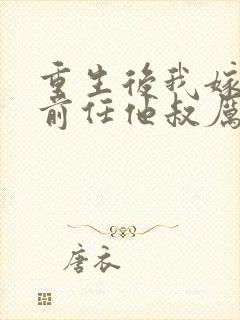 重生後我嫁
前任他叔厲
唐衣